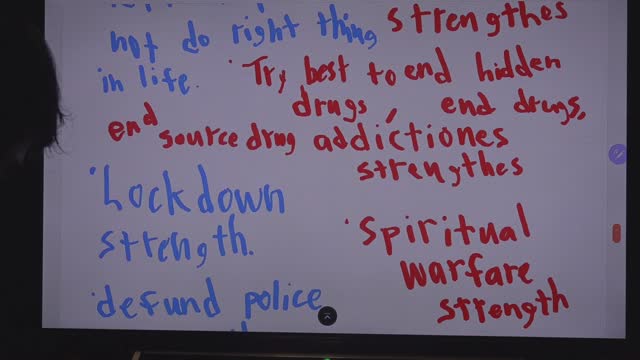 not do right thing
in life.
strengthes
· Try best to end hidden
drugs, end drugs,
end source drug addictiones
strengthes
· Lockdown
strength.
· defund police
· Spiritual
warfare
strength